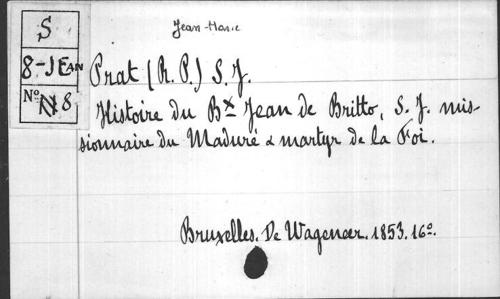 Jean-Marie
S
8-JEAN
Nº 8
Prat (R. P.) S. J.
Histoire du Bx Jean de Britto, S. J. mis-
sionnaire du Maduré & martyr de la Foi.
Bruxelles. De Wagener. 1853. 16º.